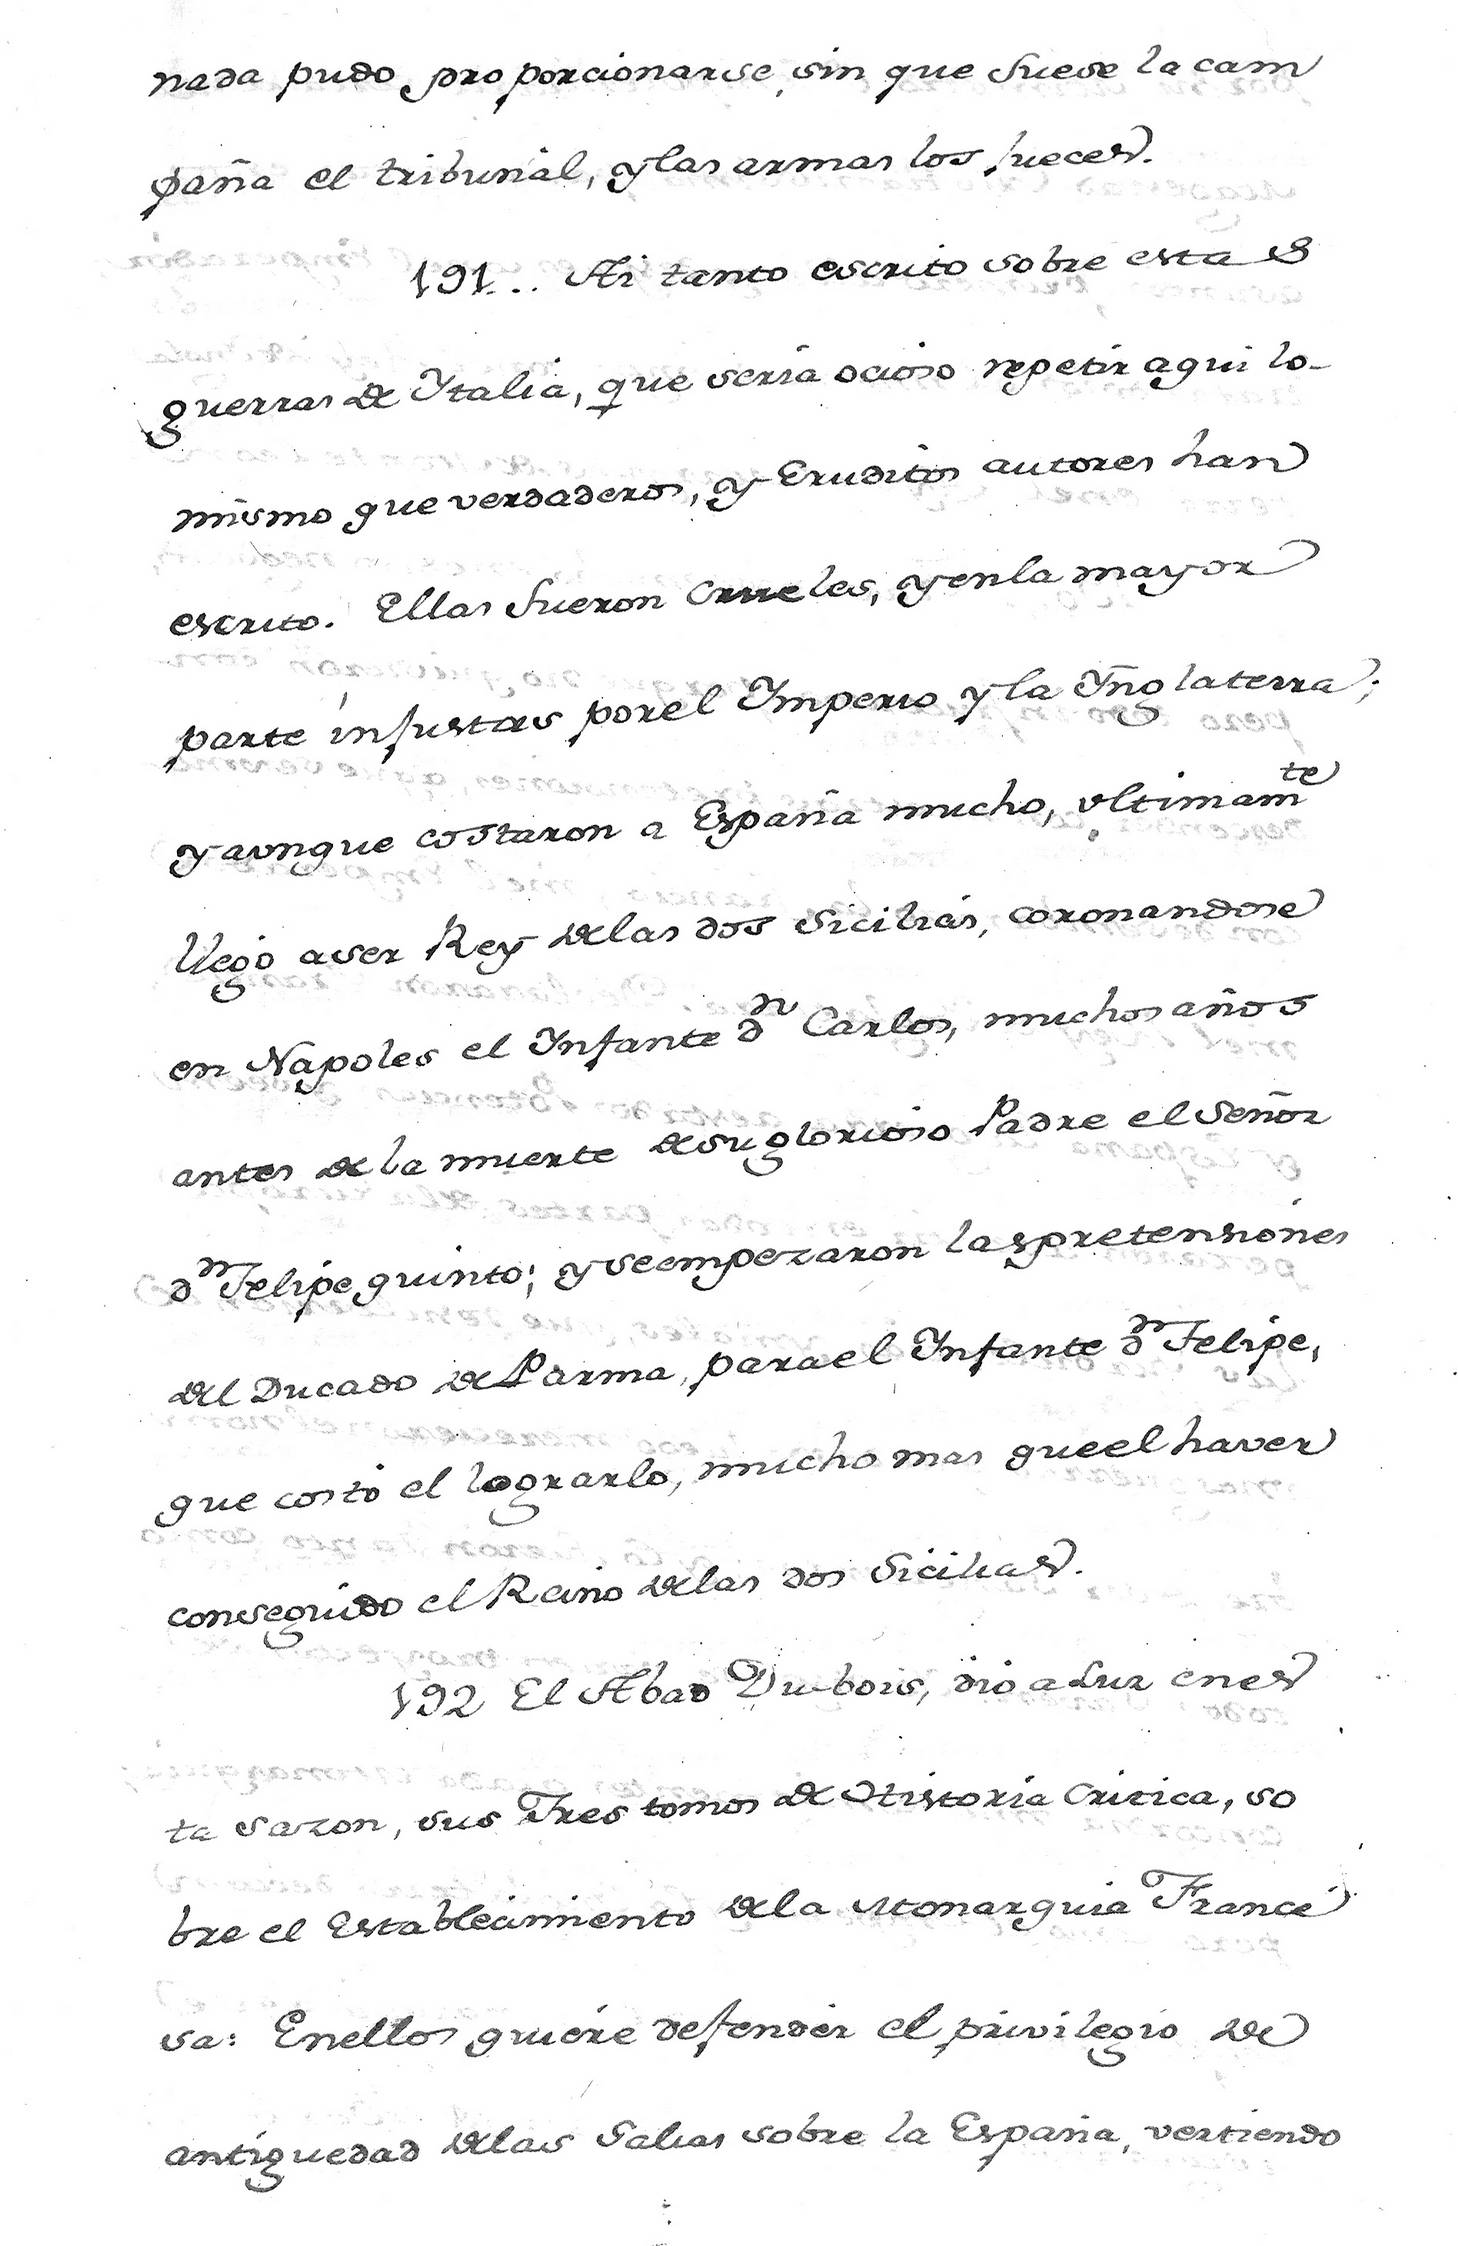 nada pudo proporcionarse, sin que fuese la cam
paña el tribunal, y las armas los Jueces.
191... Ai tanto escrito sobre estas
guerras de Ytalia, que seria ocioso repetir aqui lo-
mismo que verdaderos, y Eruditos autores han
escrito. Ellas fueron crueles, y en la mayor
parte injustas por el Ymperio y la Ynglaterra;
y aunque costaron a España mucho, ultimamte
llego a ser Rey de las dos Sicilias, coronandose
en Napoles el Ynfante dn Carlos, muchos años
antes de la muerte de su glorioso Padre el Señor
dn Felipe quinto; y se empezaron las pretensiones
del Ducado de Parma, para el Ynfante dn Felipe,
que costó el lograrlo, mucho mas que el haver
conseguido el Reino de las dos Sicilias.
192 El Abad Du-bois, dio a Luz en es
ta sazon, sus Tres tomos de Historia Critica, so
bre el Establecimiento de la Monarquia France
sa: En ellos quiere defender el privilegio de
antiguedad de las Galias sobre la España, vertiendo